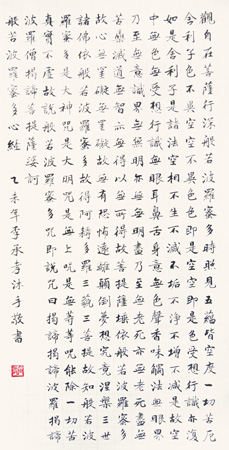 觀自在菩薩行深般若波羅蜜多時照見五蘊皆空度一切苦厄
舍利子色不異空空不異色色即是空空即是色受想行識亦復
如是舍利子是諸法空相不生不滅不垢不淨不增不減是故空
中無色無受想行識無眼耳鼻舌身意無色聲香味觸法無眼界
乃至無意識界無無明亦無無明盡乃至無老死亦無老死盡無
苦集滅道無智亦無得以無所得故菩提薩埵依般若波羅蜜多
故心無罣礙無罣礙故無有恐怖遠離顛倒夢想究竟涅槃三世
諸佛依般若波羅蜜多故得阿耨多羅三藐三菩提故知般若波
羅蜜多是大神咒是大明咒是無上咒是無等等咒能除一切苦
真實不虛故說般若波羅蜜多咒即說咒曰揭諦揭諦波羅揭諦
波羅僧揭諦菩提薩婆訶
般若波羅蜜多心經 乙未年李承孝沐手敬書